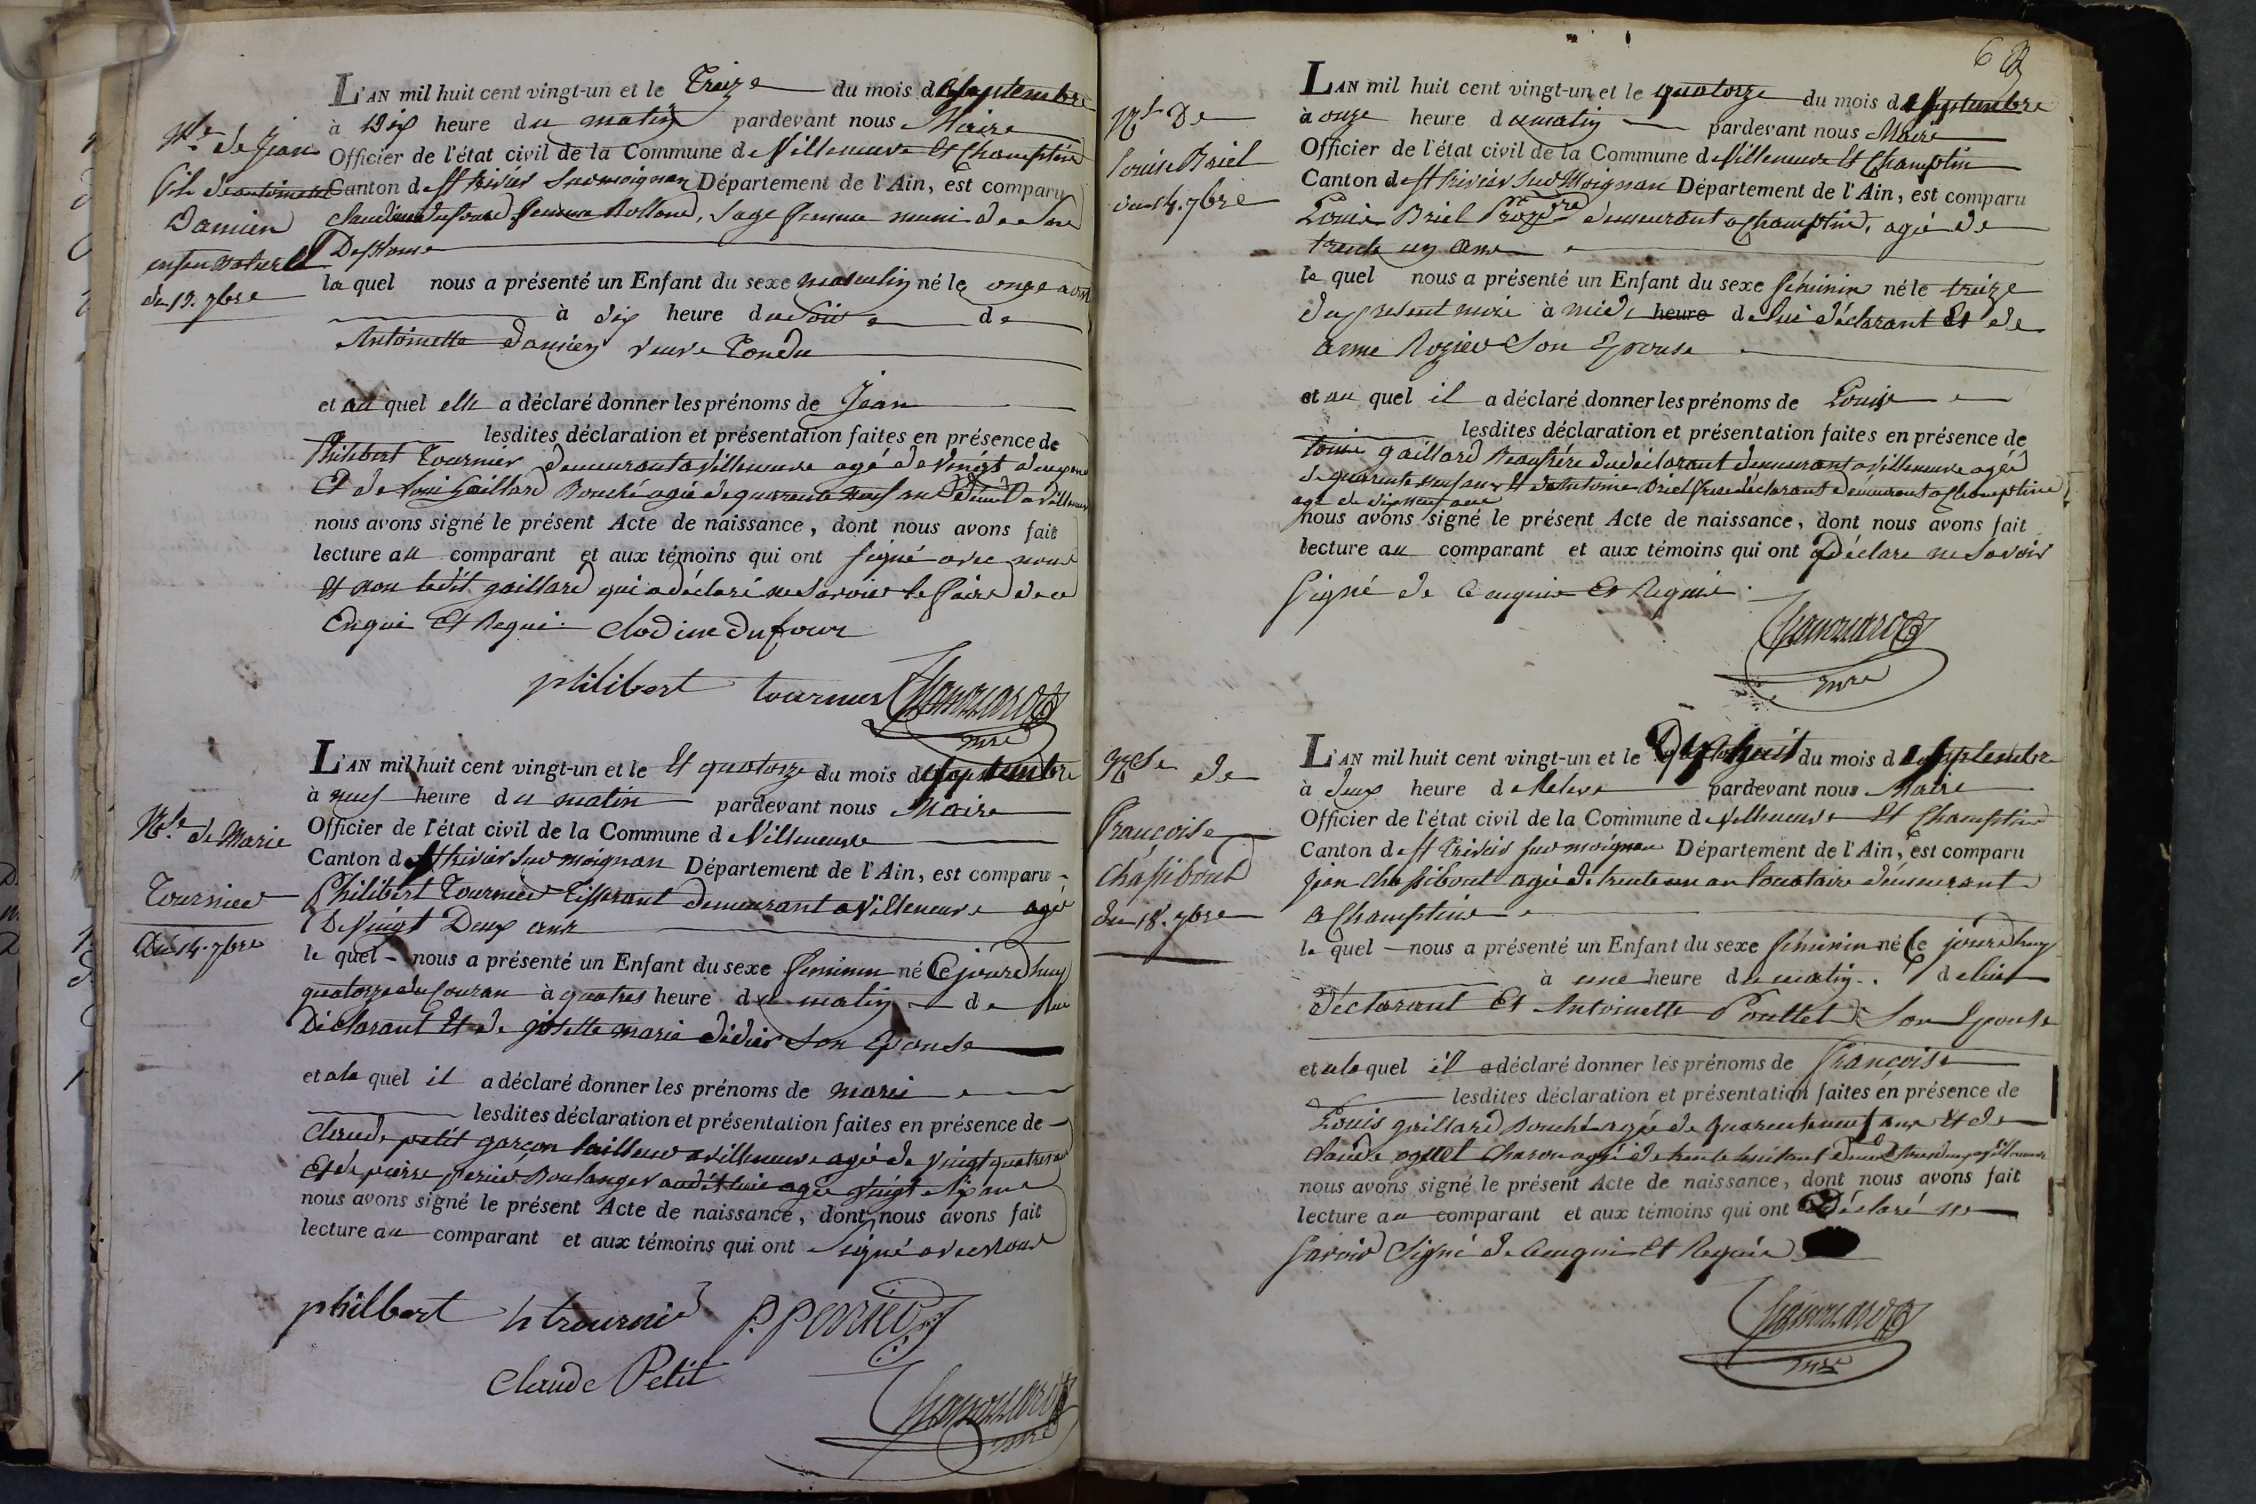 Nce de Jean
fils de antoinette
Damien
enfan naturel
du 13. 7bre
L'AN mil huit cent vingt-un et le Treize du mois de Septembre
à Dix heure du matin pardevant nous Maire
Officier de l'état civil de la Commune de Villeneuve et Champtein
Canton de St trivier Sur moignan Département de l'Ain, est comparu
Claudine dufour femme Rolland, Sage femme munie de Son
Diplome
la quel nous a présenté un Enfant du sexe masculin né le onze
à dix heure du Soir de
Antoinette Damien veuve Tondu
et au quel elle a déclaré donner les prénoms de Jean
lesdites déclaration et présentation faites en présence de
Philibert Tournier demeurant a Villeneuve agé de Vingt deux ans
Et de Loui Gaillard Bouché agée de quarente neuf ans demt a Villeneuve
nous avons signé le présent Acte de naissance, dont nous avons fait
lecture au comparant et aux témoins qui ont signé avec nous
Et non ledit gaillard qui a déclaré ne Savoir le faire de ce
Enqui Et Requi. Clodine dufour
philibert tournier
mre
Nce de Marie
Tournier
du 14. 7bre
L'AN mil huit cent vingt-un et le Et quatorze du mois de Septembre
à neuf heure du matin pardevant nous Maire
Officier de l'état civil de la Commune de Villeneuve
Canton de St trivier Sur moignan Département de l'Ain, est comparu
Philibert Tournier Tisserant demeurant a Villeneuve agé
De Vingt Deux ans
le quel nous a présenté un Enfant du sexe feminin né Ce jourdhuy
quatorze du Couran à quatres heure du matin de lui
Déclarant Et de josette marie didier Son Epouse
et a la quel il a déclaré donner les prénoms de marie
lesdites déclaration et présentation faites en présence de
Claude petit garçon tailleur a villeneuve agé de Vingt quatre ans
Et de pierre perier Boulanger audit lieu agé vingt six ans
nous avons signé le présent Acte de naissance, dont nous avons fait
lecture au comparant et aux témoins qui ont Signé avec nous
philbert tournié P. Perier
Claude Petit
mre
6
Nce De
Louise Briel
du 14. 7bre
L'AN mil huit cent vingt-un et le quatorze du mois de Septembre
à onze heure du matin pardevant nous Maire
Officier de l'état civil de la Commune de Villeneuve Et Champtein
Canton de St trivier Sur Moignan Département de l'Ain, est comparu
Louis Briel Propre demeurant a Champtein, agé de
trente un ans
le quel nous a présenté un Enfant du sexe féminin né le treize
du present mois à midi heure de lui déclarant Et de
anne Rozier Son Epouse
et au quel il a déclaré donner les prénoms de Louise
lesdites déclaration et présentation faites en présence de
Louis gaillard Beaufrére du déclarant demeurant a villeneuve agée
de quarente neuf ans Et de Antoine Briel frere déclarant demeurant a Champtein
agé de
nous avons signé le présent Acte de naissance, dont nous avons fait
lecture au comparant et aux témoins qui ont Déclare ne Savoir
Signé de Ce enquis Et Requis.
mre
Nce de
Françoise
Chassibout
du 18. 7bre
L'AN mil huit cent vingt-un et le Dixhuit du mois de Septembre
à deux heure de Releve pardevant nous Maire
Officier de l'état civil de la Commune de Villeneuve Et Champtein
Canton de St Trivier sur moignan Département de l'Ain, est comparu
Jean Chassibout agé de trente un an locataire demeurant
a Champtein
le quel nous a présenté un Enfant du sexe féminin né le jourdhuy
à une heure du matin. de lui
déclarant Et Antoinette Pouttet Son Epouse
et a la quel il a déclaré donner les prénoms de Françoise
lesdites déclaration et présentation faites en présence de
Louis gaillard Bouché agé de quarenteneuf ans Et de
Claude oguet Charon agé de trente huit ans
nous avons signé le présent Acte de naissance, dont nous avons fait
lecture au comparant et aux témoins qui ont Déclaré ne
Savoir Signé de Ce enquis Et Requis
mre